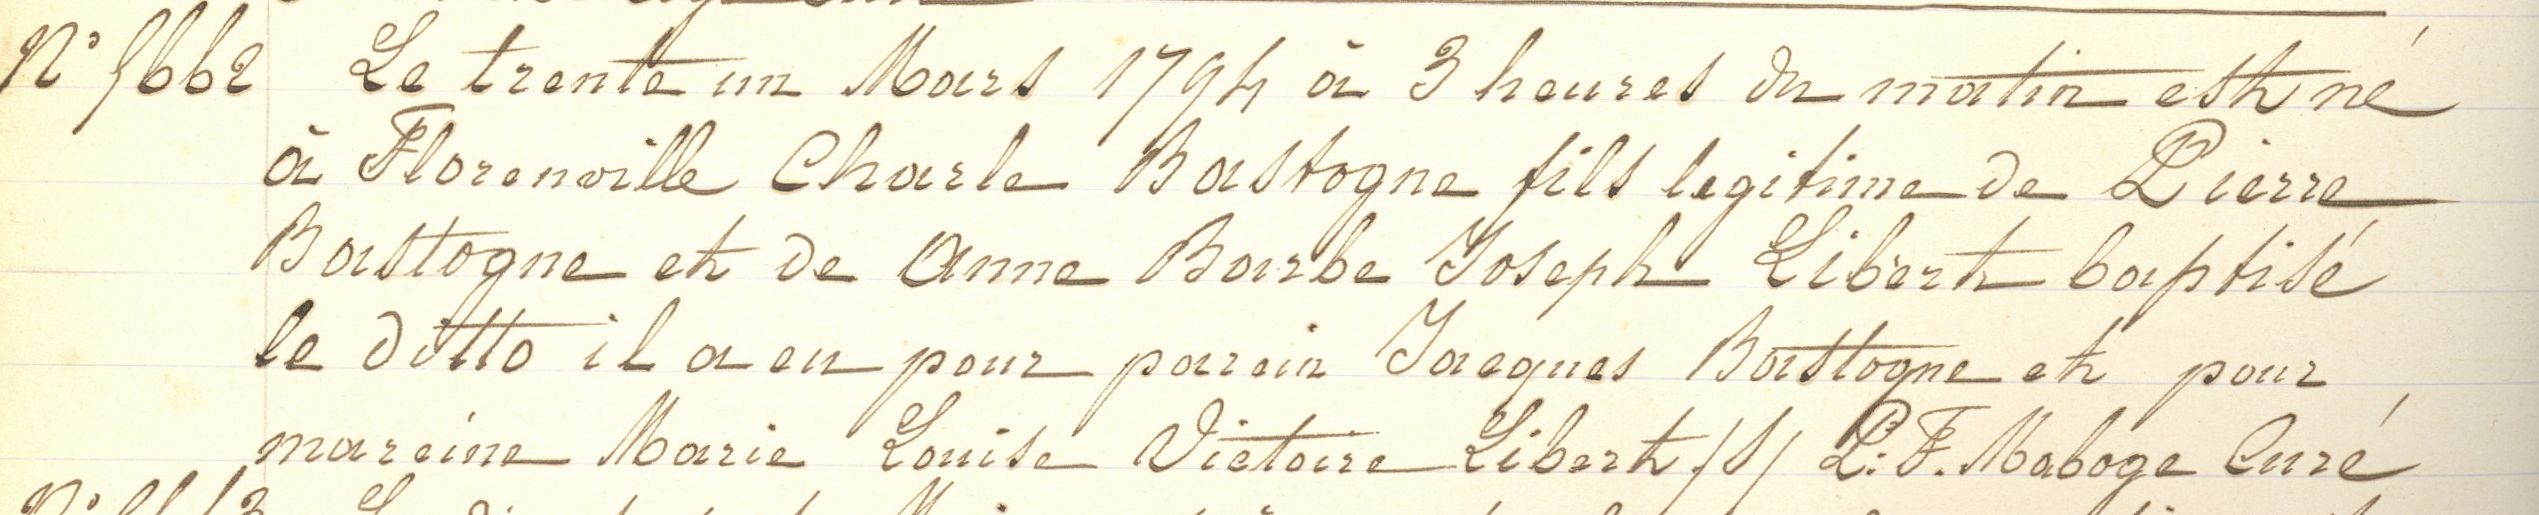 N° 5662 Le trente un Mars 1794 à 3 heures du matin est né
à Florenville Charle Bastogne fils legitime de Pierre
Bastogne et de Anne Barbe Joseph Libert baptisé
le ditto il a eu pour parein Jacques Bastogne et pour
mareine Marie Louise Victoire Libert /S/ P. F. Maboge Curé